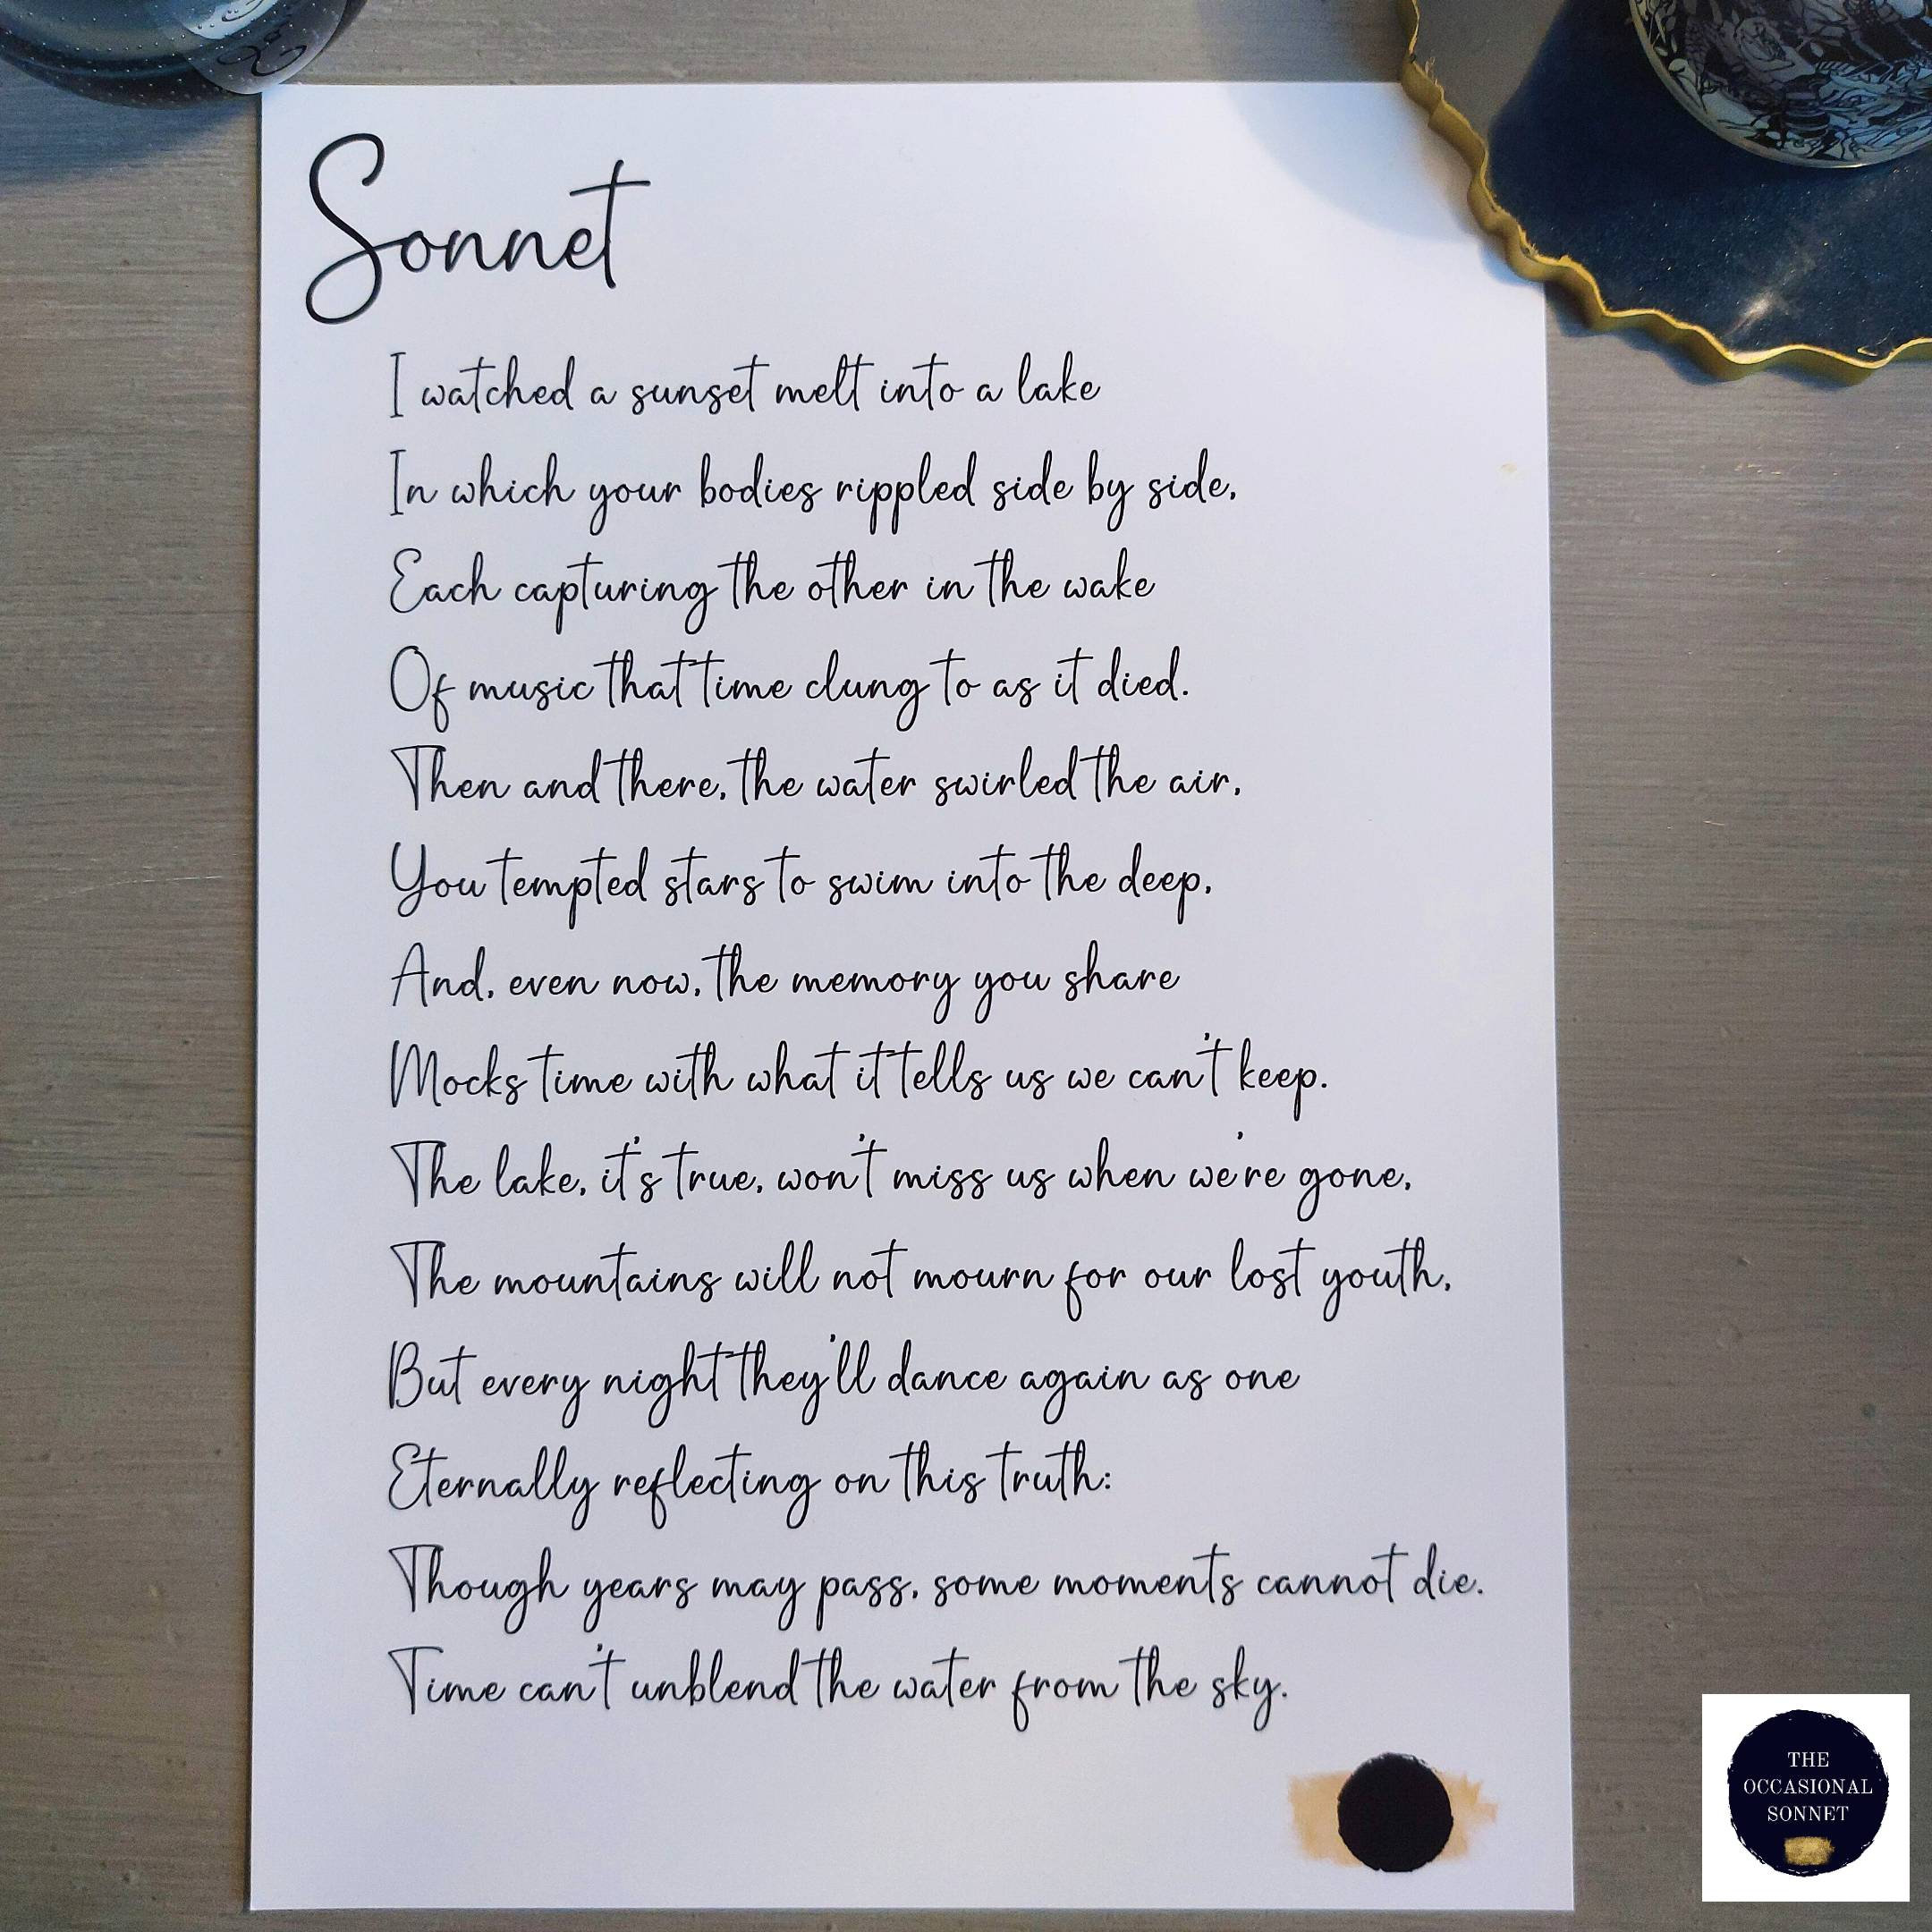 Sonnet
I watched a sunset melt into a lake
In which your bodies rippled side by side,
Each capturing the other in the wake
Of music that time clung to as it died.
Then and there, the water swirled the air,
You tempted stars to swim into the deep,
And, even now, the memory you share
Mocks time with what it tells us we can't keep.
The lake, it's true, won't miss us when we're gone,
The mountains will not mourn for our lost youth,
But every night they'll dance again as one
Eternally reflecting on this truth:
Though years may pass, some moments cannot die.
Time can't unblend the water from the sky.
THE
OCCASIONAL
SONNET